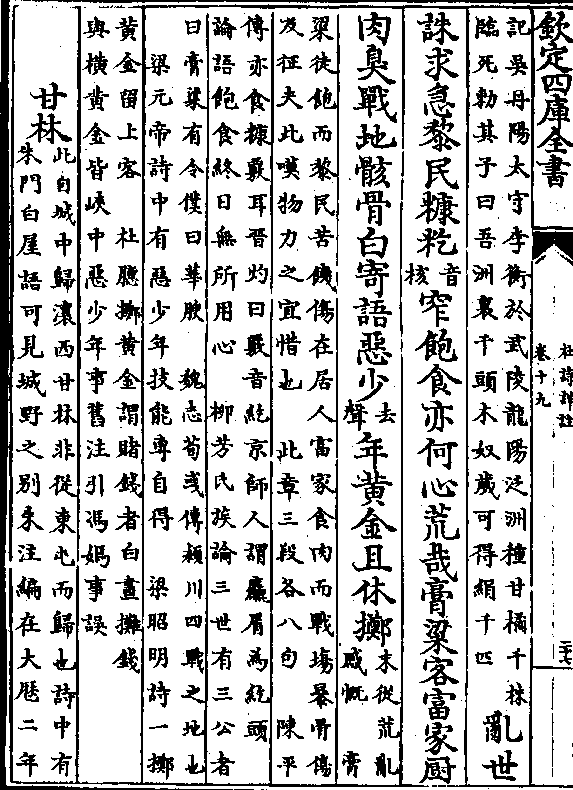 欽定四庫全書
杜詩詳註
卷十九
二十七
記吳丹陽太守李衡於武陵龍陽泛洲種甘橘千株
臨死勅其子曰吾洲裏千頭木奴歲可得絹千匹
亂世
誅求急黎民糠籺音核窄飽食亦何心荒哉膏粱客富家厨
肉臭戰地骸骨白寄語惡少去聲年黄金且休擲末從荒亂感慨 膏
粱徒飽而黎民苦饑傷在居人富家食肉而戰場暴骨傷
及征夫此嘆物力之宜惜也 此章三段各八句 陳平
傳亦食糠覈耳晋灼曰覈音紇京師人謂麤屑為紇頭
論語飽食終日無所用心 柳芳氏族論三世有三公者
曰膏粱有令僕曰華腴 魏志荀彧傳潁川四戰之地也
梁元帝詩中有惡少年技能專自得 梁昭明詩一擲
黄金留上客 杜臆擲黄金謂賭錢者白晝攤錢
與橫黄金皆峽中惡少年事舊注引馮嫣事誤
甘林
此自城中歸瀼西甘林非從東屯而歸也詩中有
朱門白屋語可見城野之别朱注編在大厯二年